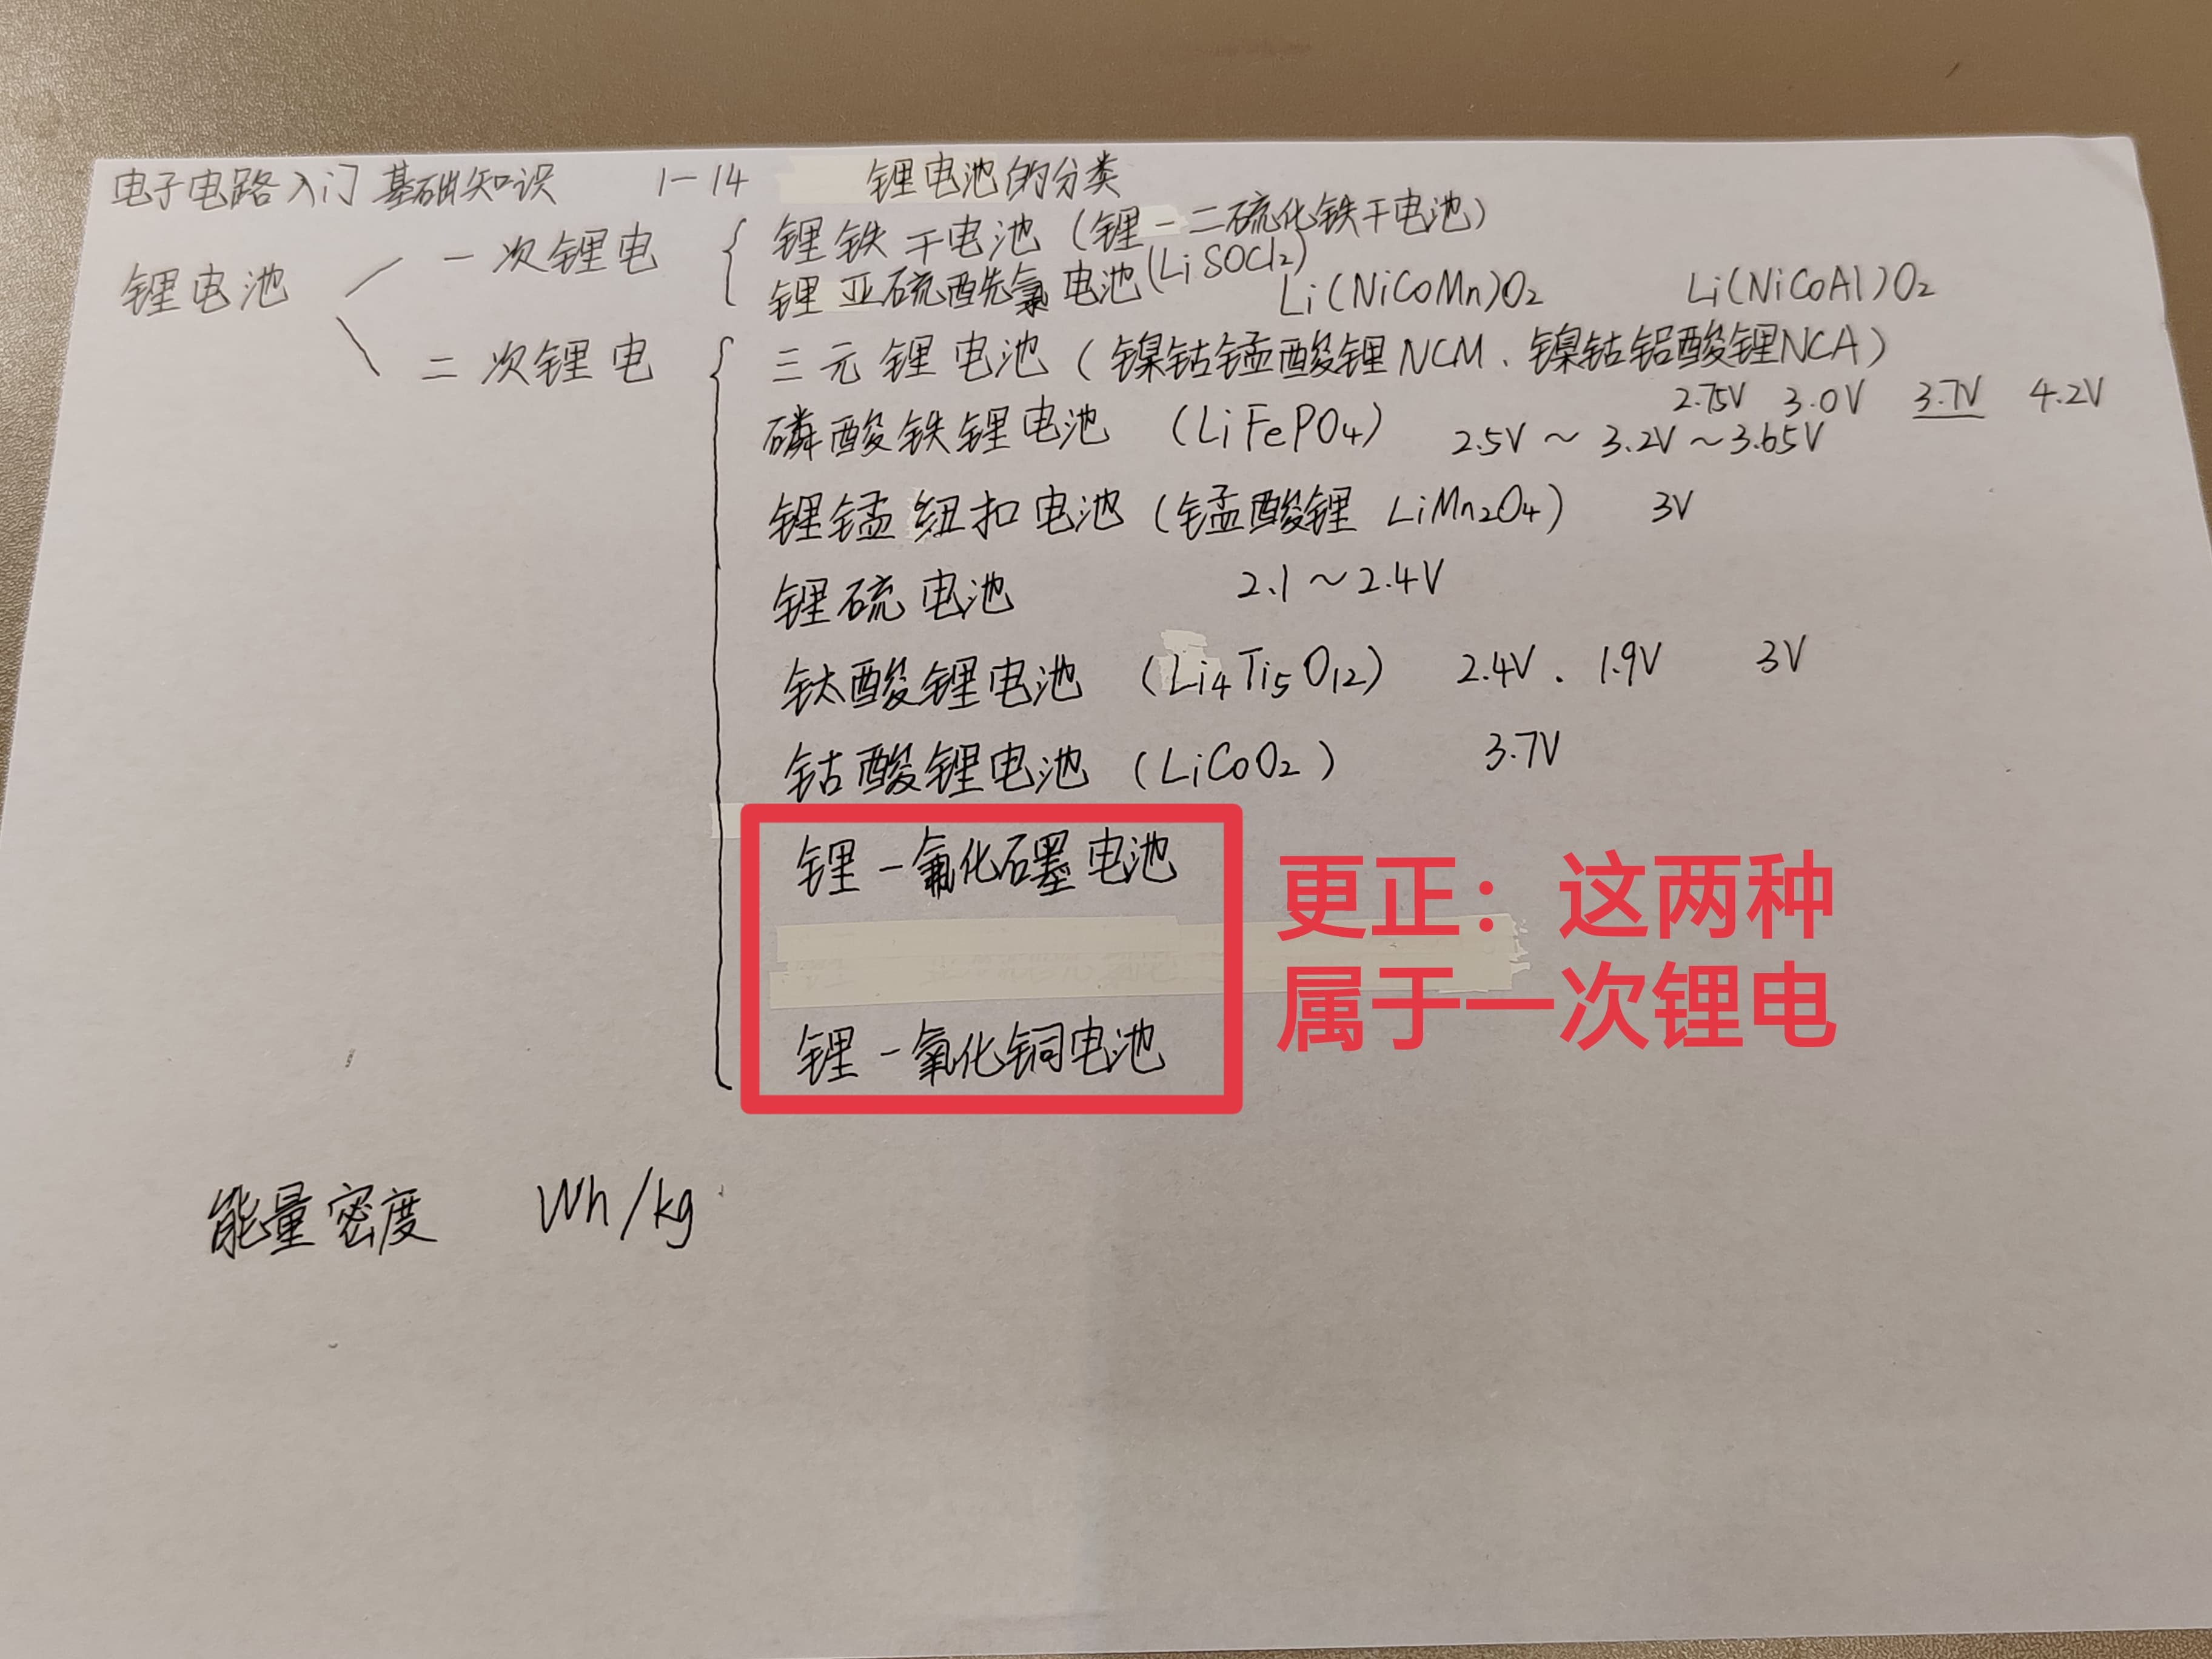 电子电路入门基础知识 1-14 锂电池的分类
锂电池
一次锂电
锂铁干电池（锂-二硫化铁干电池）
锂亚硫酰氯电池(LiSOCl2)
二次锂电
Li(NiCoMn)O2 Li(NiCoAl)O2
三元锂电池（镍钴锰酸锂NCM、镍钴铝酸锂NCA）
2.75V 3.0V 3.7V 4.2V
磷酸铁锂电池 (LiFePO4) 2.5V～3.2V～3.65V
锂锰纽扣电池（锰酸锂 LiMn2O4） 3V
锂硫电池 2.1～2.4V
钛酸锂电池 (Li4Ti5O12) 2.4V、1.9V 3V
钴酸锂电池 (LiCoO2) 3.7V
锂-氟化石墨电池
锂-氧化铜电池
更正：这两种
属于一次锂电
能量密度 Wh/kg